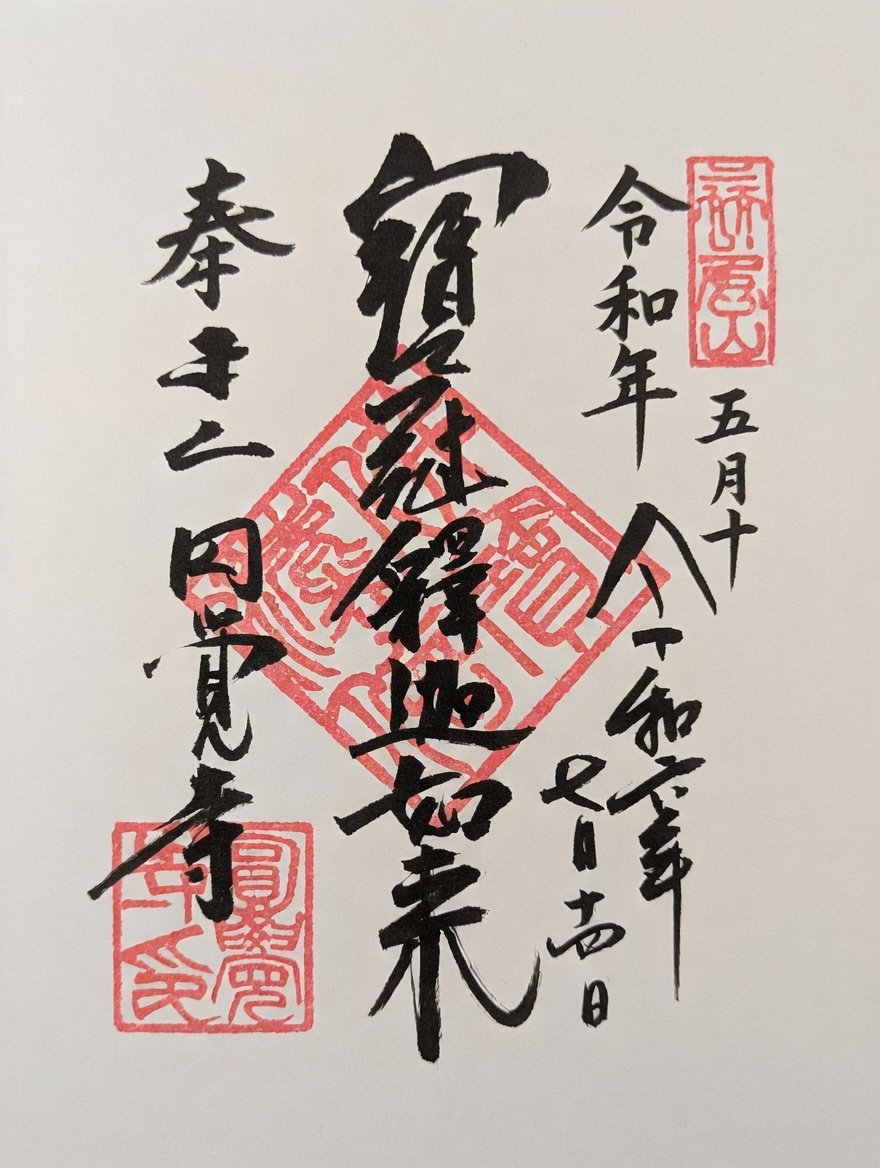 五月十
令和年
令和六年
七月十四日
寶冠釋迦如来
奉
円覚寺
圓覺寺印